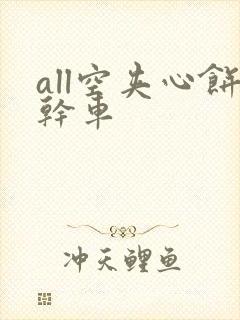 all空夹心餅
幹車
冲天鲤鱼